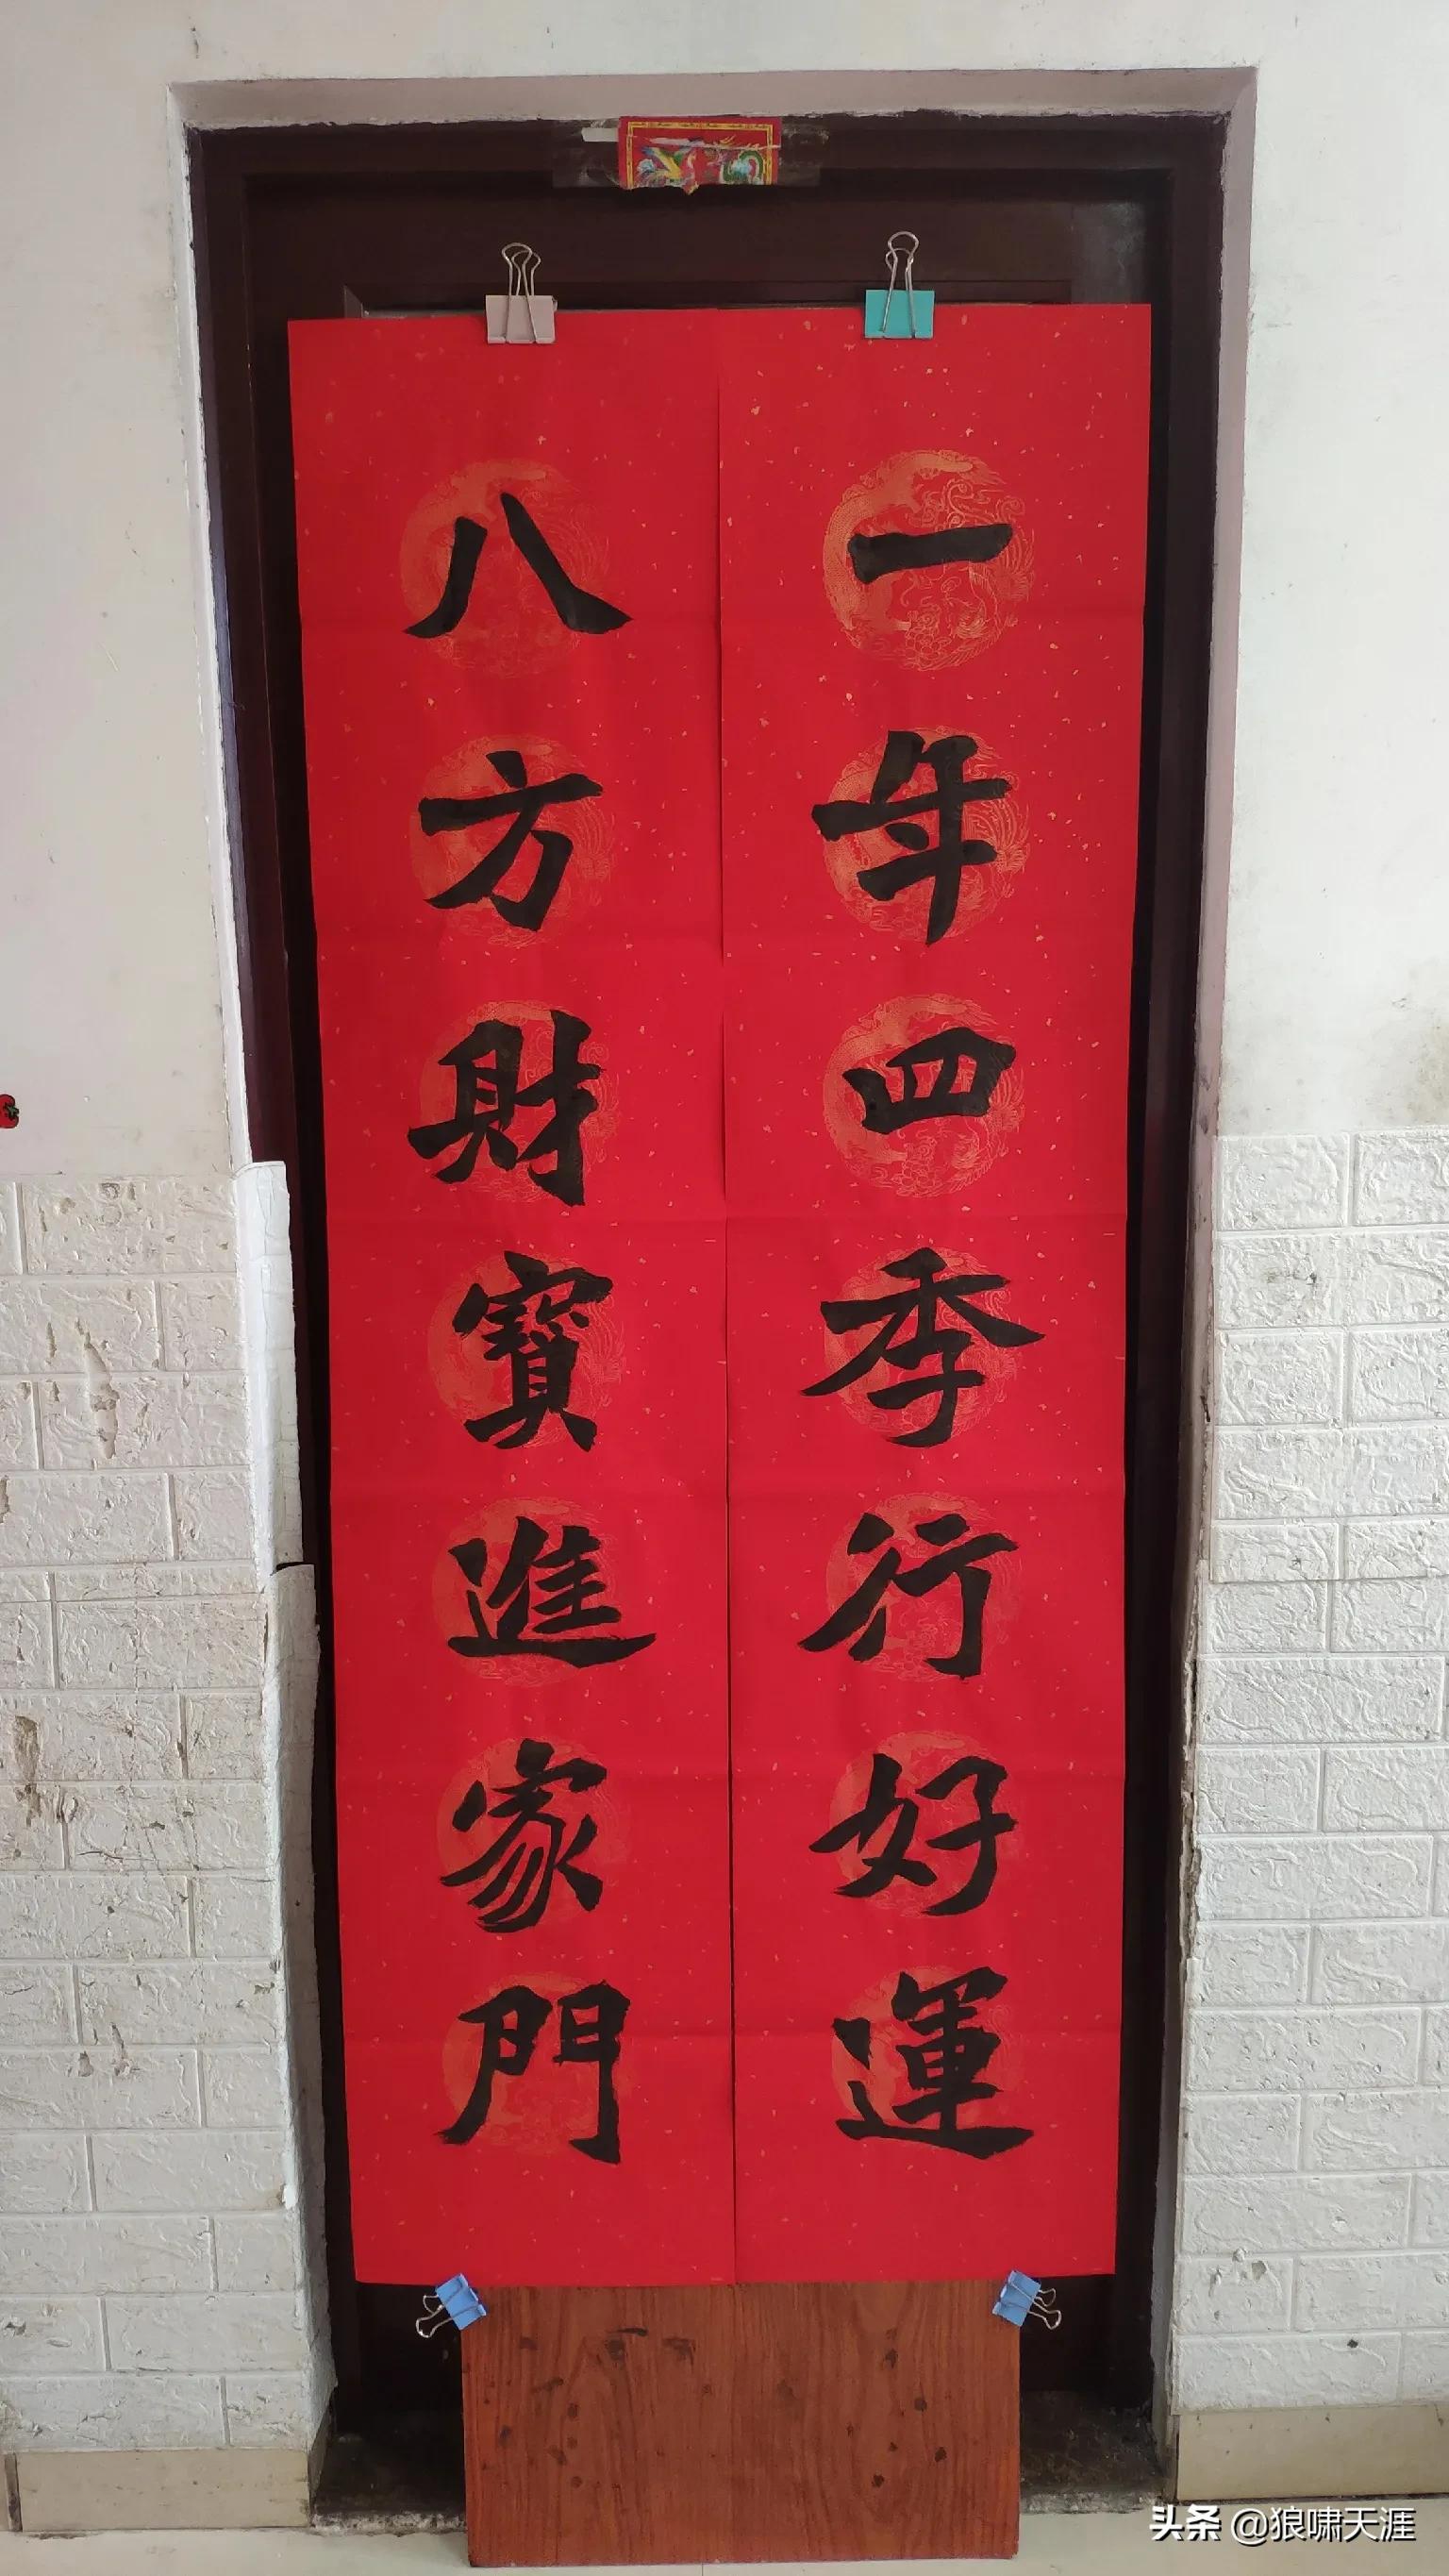 一年四季行好運
八方財寶進家門
头条 @狼啸天涯